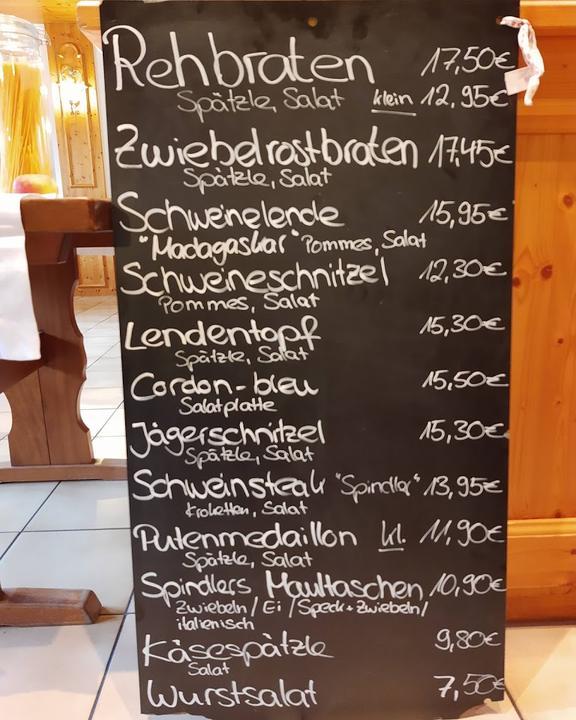 Rehbraten 17,50€
Spätzle, Salat klein 12,95€
Zwiebelrostbraten 17,45€
Spätzle, Salat
Schweinelende 15,95€
"Madagaskar" Pommes, Salat
Schweineschnitzel 12,30€
Pommes, Salat
Lendentopf 15,30€
Spätzle, Salat
Cordon-bleu 15,50€
Salatplatte
Jägerschnitzel 15,30€
Spätzle, Salat
Schweinsteak "Spindler" 13,95€
Kroketten, Salat
Putenmedaillon kl. 11,90€
Spätzle, Salat
Spindlers Maultaschen 10,90€
Zwiebeln/Ei/Speck+Zwiebeln/
italienisch
Käsespätzle 9,80€
Salat
Wurstsalat 7,50€